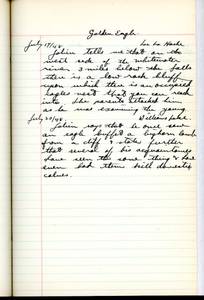 Golden Eagle
July 17/48 Lac La Hache
John tells me that on the
west side of the Whitewater
river 3 miles below the falls
there is a low rock bluff
upon which there is an occupied
eagles nest that you can reach
into. The parents attacked him
as he was examining the young.
July 20/48 Williams Lake.
John says that he once saw
an eagle buffet a bighorn lamb
from a cliff & states further
that several of his acquaintances
have seen the same thing & have
even had them kill domestic
calves.